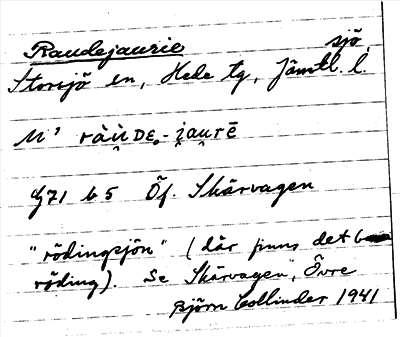 Raudejaurie sjö,
Storsjö sn, Hede tg, Jämtl. l.
M' ràu̯DE̥-i̯au̯rē
G71 b 5 Öf. Skärvagen
"rödingsjön" (där finns det
röding). Se Skärvagen, Övre
Björn Collinder 1941